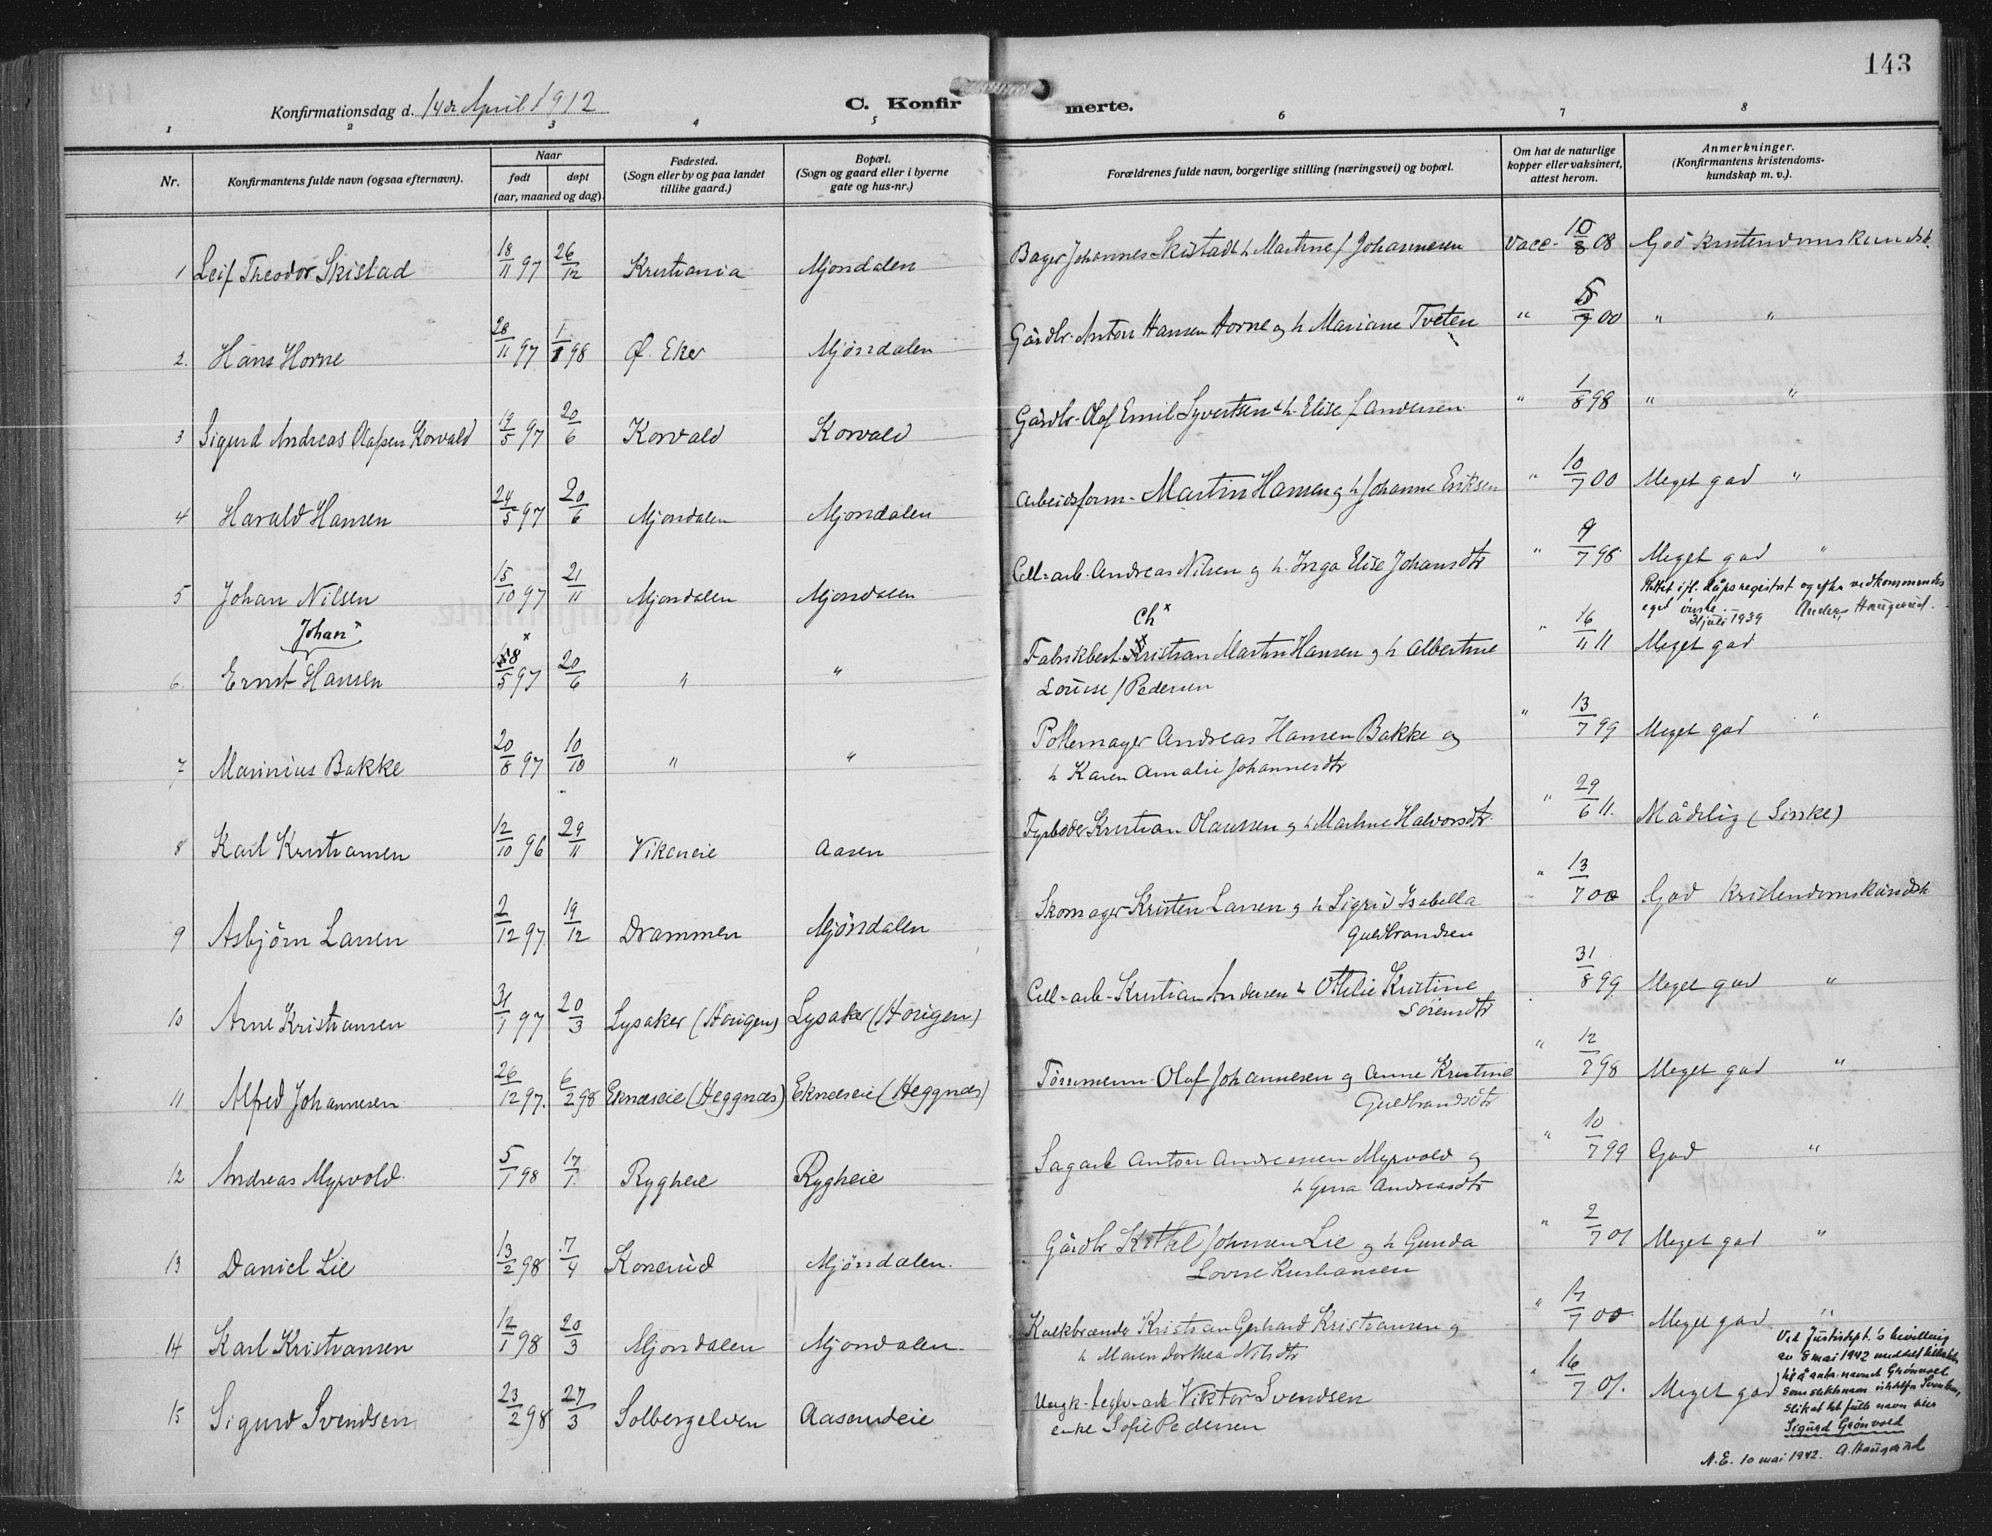 143
Konfirmationsdag d. 14de April 1912
C. Konfirmerte.
1 2 3 4 5 6 7 8
Nr. Konfirmantens fulde navn (ogsaa efternavn). Naar født døpt (aar, maaned og dag). Fødested. (Sogn eller by og paa landet tillike gaard.) Bopæl. (Sogn og gaard eller i byerne gate og hus-nr.) Forældrenes fulde navn, borgerlige stilling (næringsvei) og bopæl. Om hat de naturlige kopper eller vaksinert, attest herom. Anmerkninger. (Konfirmantens kristendoms-kundskap m. v.).
1 Leif Theodor Skistad 18/11 97 26/12 Kristiania Mjøndalen Bager Johannes Skistad h Martine f Johannesen Vacc. 10/8 08 God kristendomskundsk.
2. Hans Horne 28/11 97 1/1 98 Ø. Eker Mjøndalen Gårdbr. Anton Hansen Horne og h Mariane Tveten " 5/7 00 " "
3 Sigurd Andreas Olafsen Korvald 19/5 97 20/6 Korvald Korvald Gårdbr. Olaf Emil Syvertsen & h. Elise f Andersen " 1/8 98 " "
4 Harald Hansen 24/5 97 20/6 Mjøndalen Mjøndalen Arbeidsform. Martin Hansen og h Johanne Eriksen " 10/7 00 Meget god "
5 Johan Nilsen 15/10 97 21/11 Mjøndalen Mjøndalen Cell-arb. Andreas Nilsen og h. Inga Elise Johansdtr " 9/7 98 Meget god "
Rettet ifl. dåpsregistret og efter vedkommendes
eget ønske. 31 juli 1939 Anders Haugerud.
Johan
6. Ernst Hansen 18/5 97 20/6 " " Fabrikbest. Kristian Martin Hansen og h Albertine " 16/4 11 Meget god
Ch x
Louise f Pedersen
7 Marinius Bakke 20/8 97 10/10 " " Pottemager Andreas Hansen Bakke og " 13/7 99 Meget god "
h Karen Amalie Johannesdtr
8 Karl Kristiansen 12/10 96 29/11 Vikeneie Aasen Fyrbøder Kristian Olaussen og h Martine Halvorsdtr. " 29/6 11. Mådelig (Sinke)
9 Asbjörn Larsen 2/12 97. 19/12 Drammen Mjøndalen Skomager Kristen Larsen og h Sigrid Isabella " 13/7 00 God kristendomskundsk
Guldbrandsen
10 Arne Kristiansen 31/1 97 20/3 Lysaker (Horigen) Lysaker (Horigen) Cell-arb. Kristian Andersen h Othilie Kristine 31/8 99 Meget god "
Sörensdtr
11 Alfred Johannesen 26/12 97. 6/2 98 Eknæseie (Heggnæs) Eknæseie (Heggnæs) Tömmerm. Olaf Johannesen og Anne Kristine " 12/7 98 Meget god "
Guldbrandsdtr
12 Andreas Myrvold. 5/1 98 17/7. Rygheie Rygheie Sagarb Anton Andreassen Myrvold og " 10/7 99 God "
h Gina Andreasdtr
13 Daniel Lie 13/2 98 7/4 Konerud Mjøndalen. Gårdbr Kittel Johnsen Lie og h Gunda " 2/7 01 Meget god "
Lovise Kristiansen
14 Karl Kristiansen 12/1 98 20/3 Mjøndalen Mjøndalen. Kalkbrænder Kristian Gerhard Kristiansen og " 17/7 00. Meget god "
h Maren Dorthea Nilsdtr
15 Sigurd Svendsen 23/2 98 27/3 Solbergelven Aasendeie Viktor Svendsen " 16/7 01. Meget god
enke Sofie Pedersen
Ved Justisdept.'s bevilling
av 8 mai 1942 meddelt
til å anta navnet Grönvold
som slektsnavn istedenfor Svendsen,
slik at det fulle navn blir
Sigurd Grönvold
N.E. 10 mai 1942. A. Haugerud